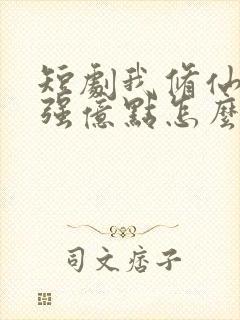 短劇我修仙
强億點怎麼
司文痞子